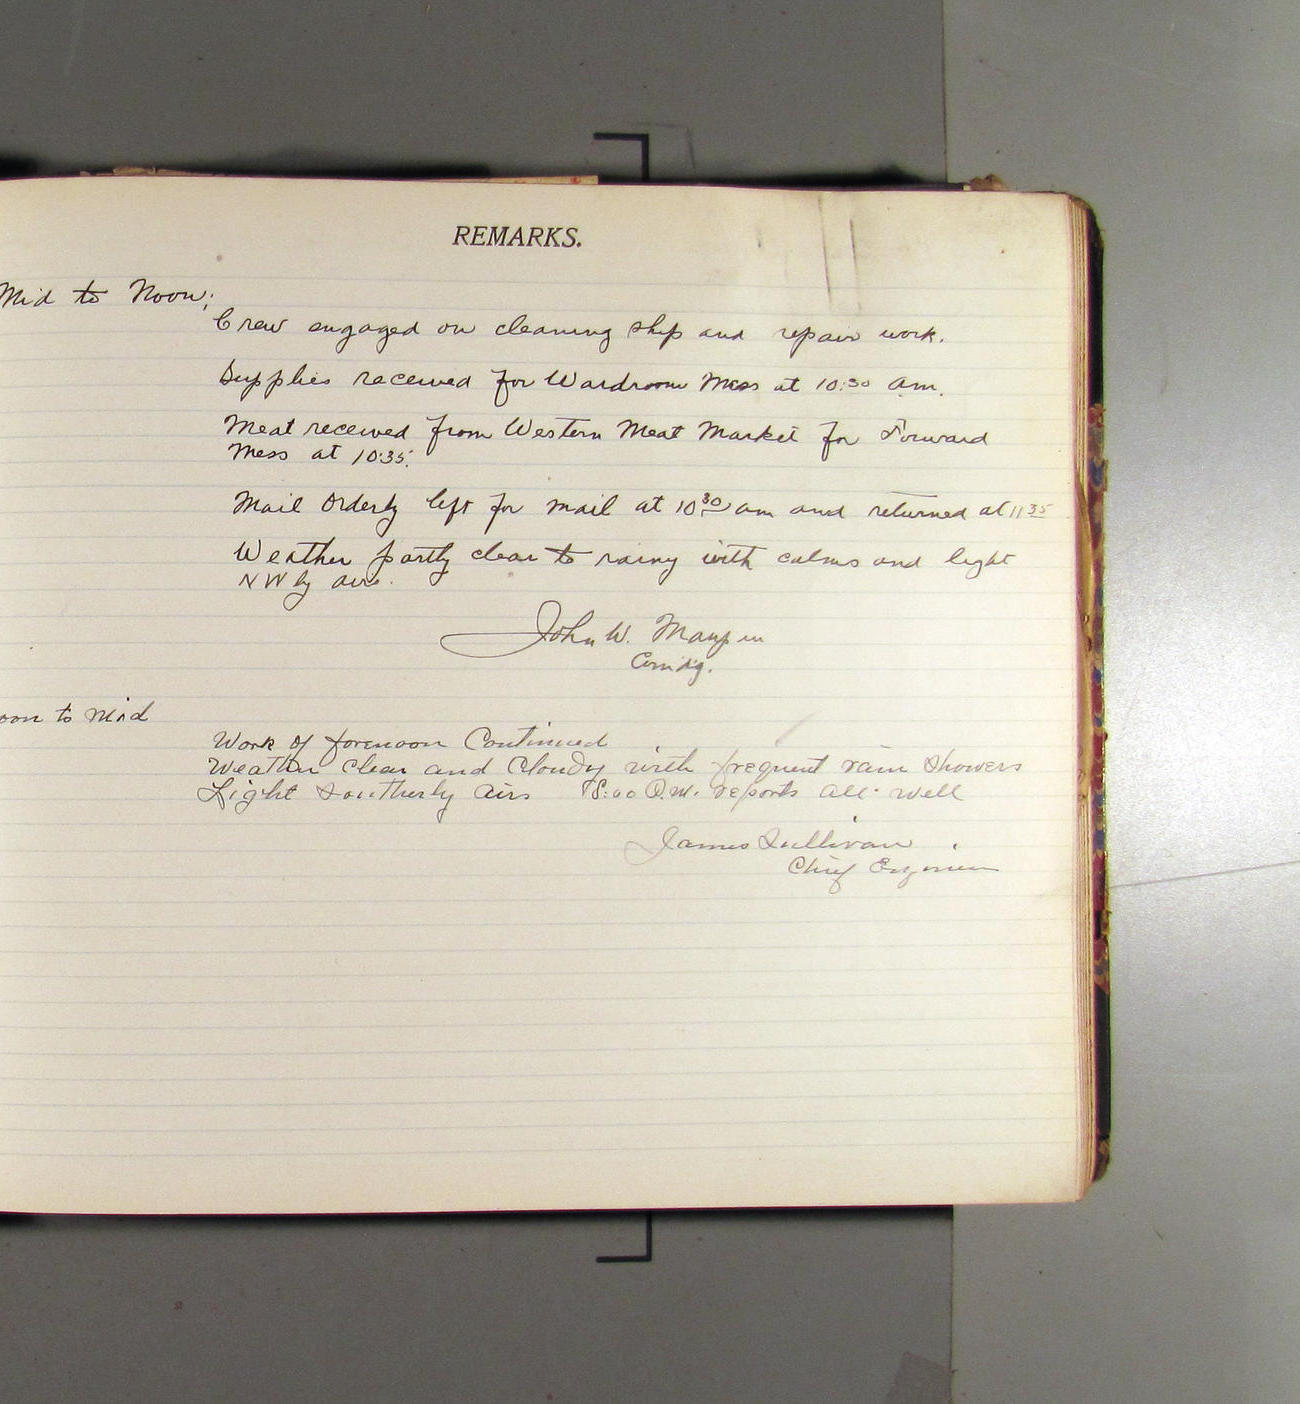 REMARKS.
Mid to Noon;
Crew engaged on cleaning ship and repair work.
Supplies received for Wardroom Mess at 10:30 am.
Meat received from Western Meat Market for Forward
Mess at 10:35.
Mail Orderly left for mail at 10 30 am and returned at 11 35
Weather partly clear to rainy with calms and light
NW'ly airs.
John W. Maupin
Comdg.
oon to Mid
Work of forenoon Continued
Weather Clear and Cloudy with frequent rain Showers
Light Southerly Airs 8:00 P.M. reports all well
James Sullivan
Chief Engineer